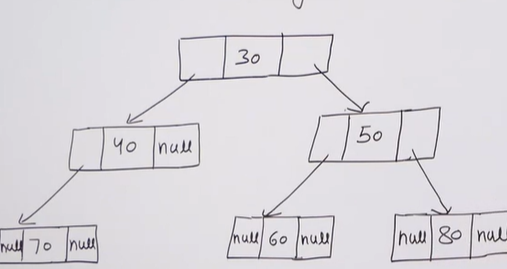 30
40 null
50
null 70 null
null 60 null
null 80 null